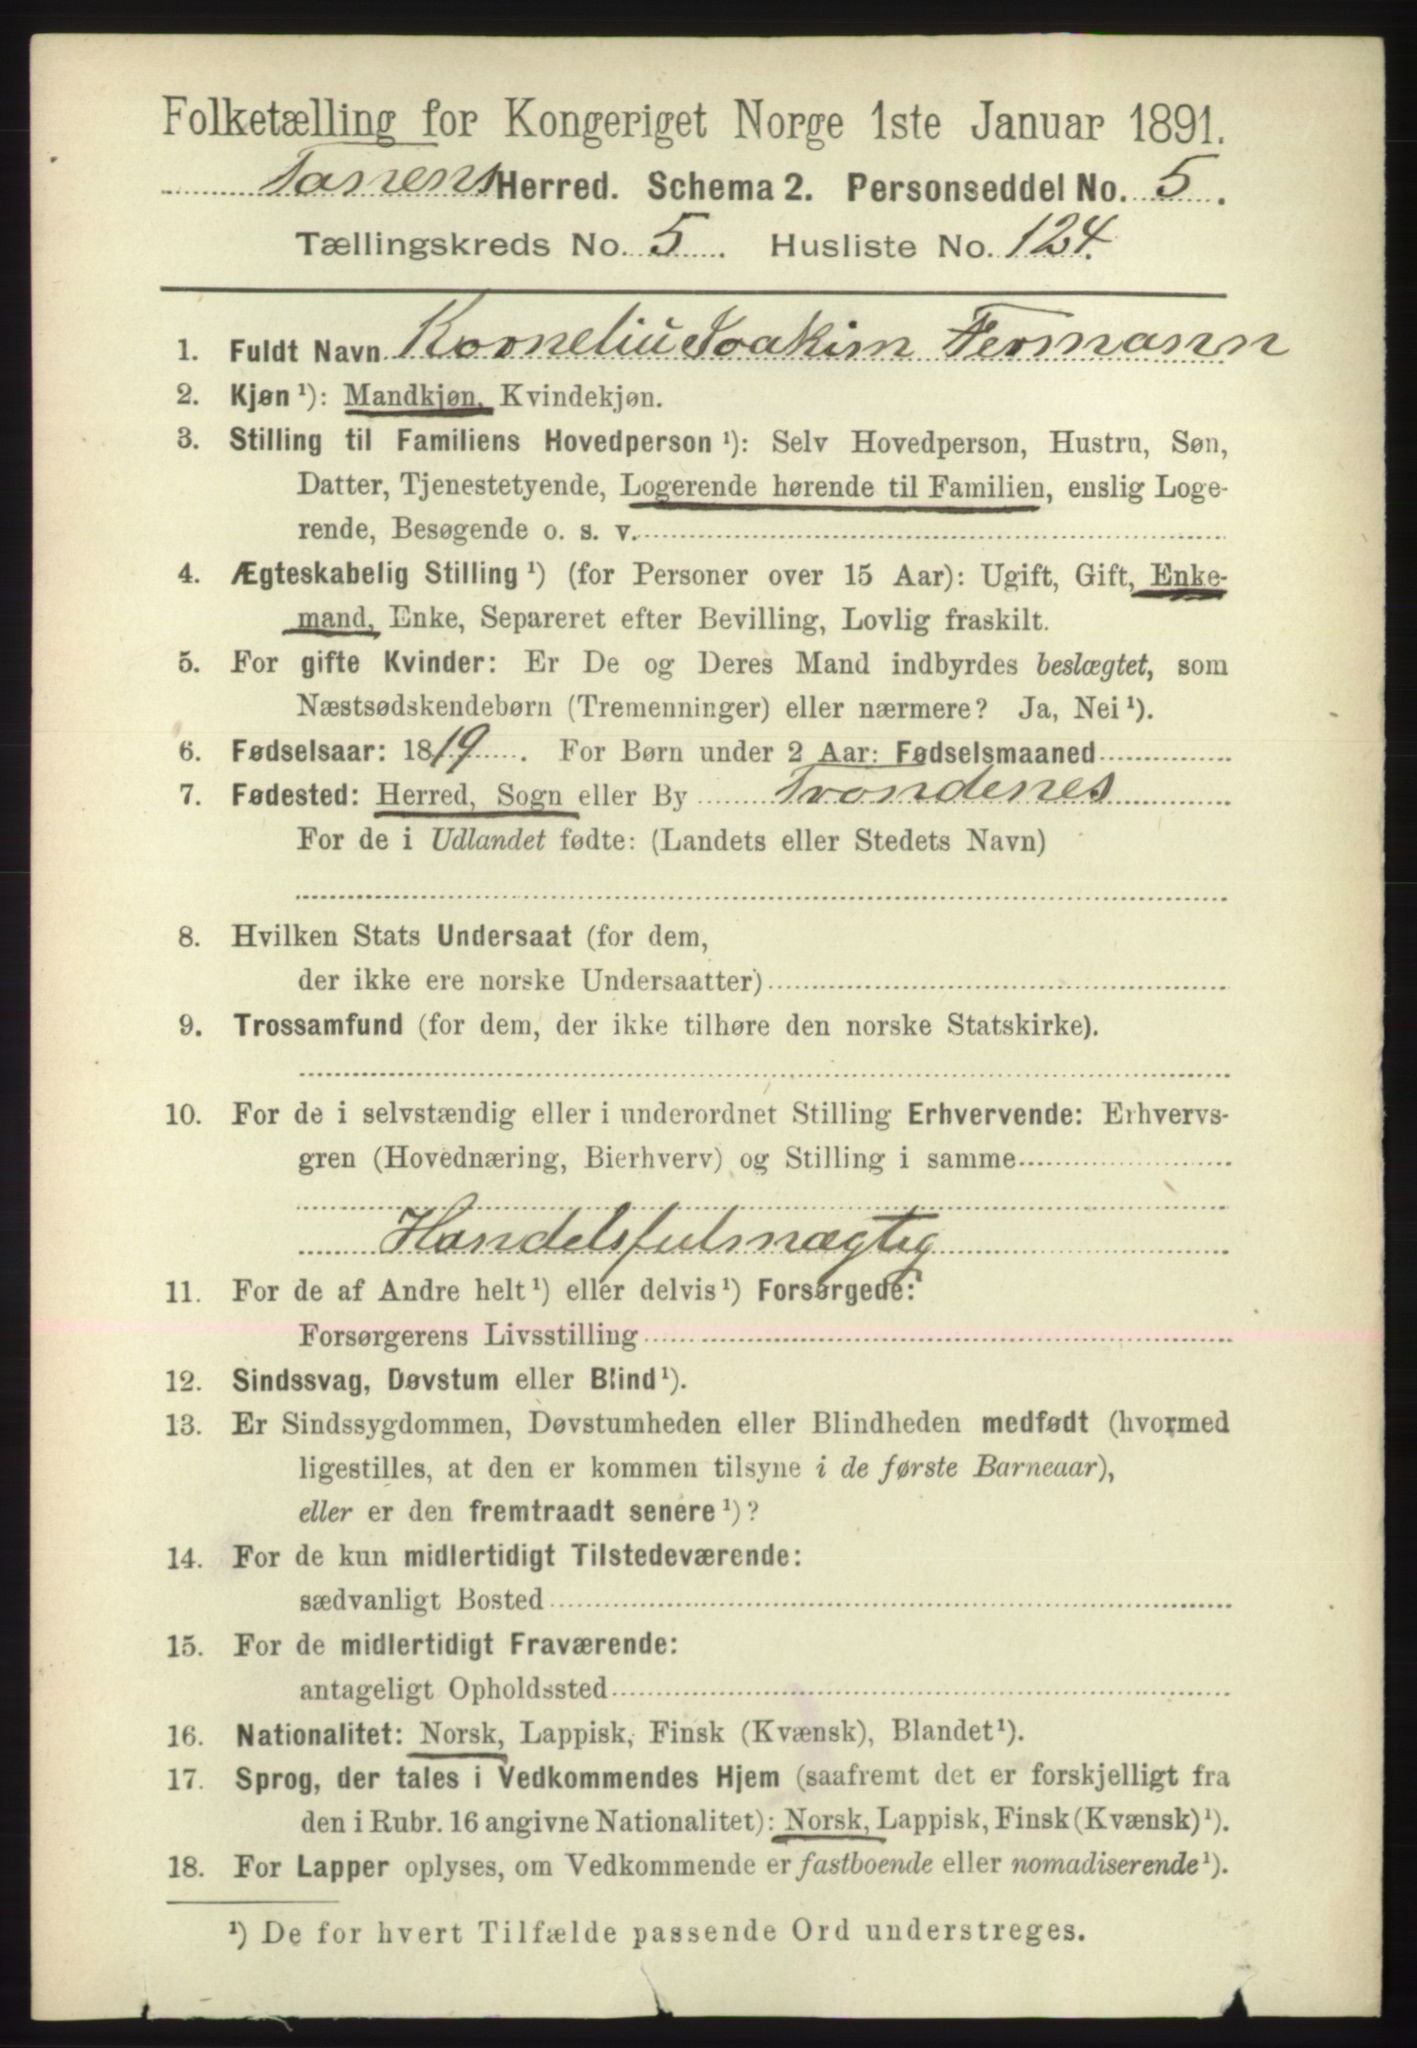 Folketælling for Kongeriget Norge 1ste Januar 1891.
Tanens Herred. Schema 2. Personseddel No. 5.
Tællingskreds No. 5. Husliste No. 124.
1. Fuldt Navn Kornelius Joakim Fermann
2. Kjøn ¹): Mandkjøn, Kvindekjøn.
3. Stilling til Familiens Hovedperson ¹): Selv Hovedperson, Hustru, Søn,
Datter, Tjenestetyende, Logerende hørende til Familien, enslig Loge-
rende, Besøgende o. s. v.
4. Ægteskabelig Stilling ¹) (for Personer over 15 Aar): Ugift, Gift, Enke-
mand, Enke, Separeret efter Bevilling, Lovlig fraskilt.
5. For gifte Kvinder: Er De og Deres Mand indbyrdes beslægtet, som
Næstsødskendebørn (Tremenninger) eller nærmere? Ja, Nei ¹).
6. Fødselsaar: 1819. For Børn under 2 Aar: Fødselsmaaned
7. Fødested: Herred, Sogn eller By Trondenes
For de i Udlandet fødte: (Landets eller Stedets Navn)
8. Hvilken Stats Undersaat (for dem,
der ikke ere norske Undersaatter)
9. Trossamfund (for dem, der ikke tilhøre den norske Statskirke).
10. For de i selvstændig eller i underordnet Stilling Erhvervende: Erhvervs-
gren (Hovednæring, Bierhverv) og Stilling i samme
Handelsfulmægtig
11. For de af Andre helt ¹) eller delvis ¹) Forsørgede:
Forsørgerens Livsstilling
12. Sindssvag, Døvstum eller Blind ¹).
13. Er Sindssygdommen, Døvstumheden eller Blindheden medfødt (hvormed
ligestilles, at den er kommen tilsyne i de første Barneaar),
eller er den fremtraadt senere ¹)?
14. For de kun midlertidigt Tilstedeværende:
sædvanligt Bosted
15. For de midlertidigt Fraværende:
antageligt Opholdssted
16. Nationalitet: Norsk, Lappisk, Finsk (Kvænsk), Blandet ¹).
17. Sprog, der tales i Vedkommendes Hjem (saafremt det er forskjelligt fra
den i Rubr. 16 angivne Nationalitet): Norsk, Lappisk, Finsk (Kvænsk) ¹).
18. For Lapper oplyses, om Vedkommende er fastboende eller nomadiserende ¹).
¹) De for hvert Tilfælde passende Ord understreges.